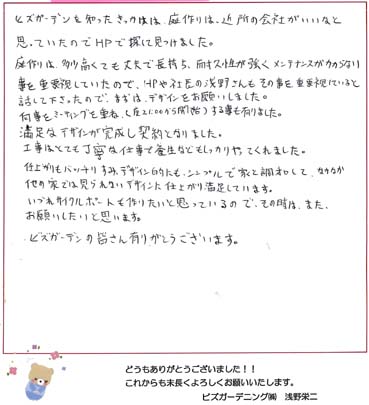 ビズガーデンを知ったきっかけは、庭作りは、近所の会社がいいなと
思っていたのでHPで探して見つけました。
庭作りは、多少高くても丈夫で長持ち、耐久性が強くメンテナンスがかからない
事を重要視していたので、HPや社長の浅野さんもその事を重要視していると
話して下さったので、まずは、デザインをお願いしました。
何事もミーティングを重ね、(夜21:00から開始)する事も有りました。
満足なデザインが完成し契約となりました。
工事はとても丁寧な仕事で養生などもしっかりやってくれました。
仕上がりもバッチリすみ、デザイン的にも、シンプルで家と調和して、なかなか
他の家では見られないデザインに仕上がり満足しています。
いづれサイクルポートも作りたいと思っているので、その時は、また、
お願いしたいと思います。
ビズガーデンの皆さん有りがとうございます。
どうもありがとうございました!!
これからも末長くよろしくお願いいたします。
ビズガーデニング㈱ 浅野栄二